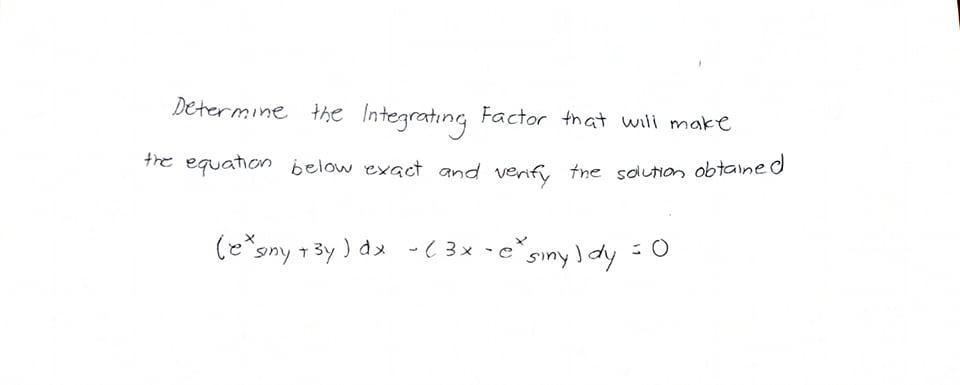 Determine the Integrating Factor that will make
the equation below exact and verify the solution obtained
(eˣsiny + 3y) dx - (3x - eˣsiny) dy = 0